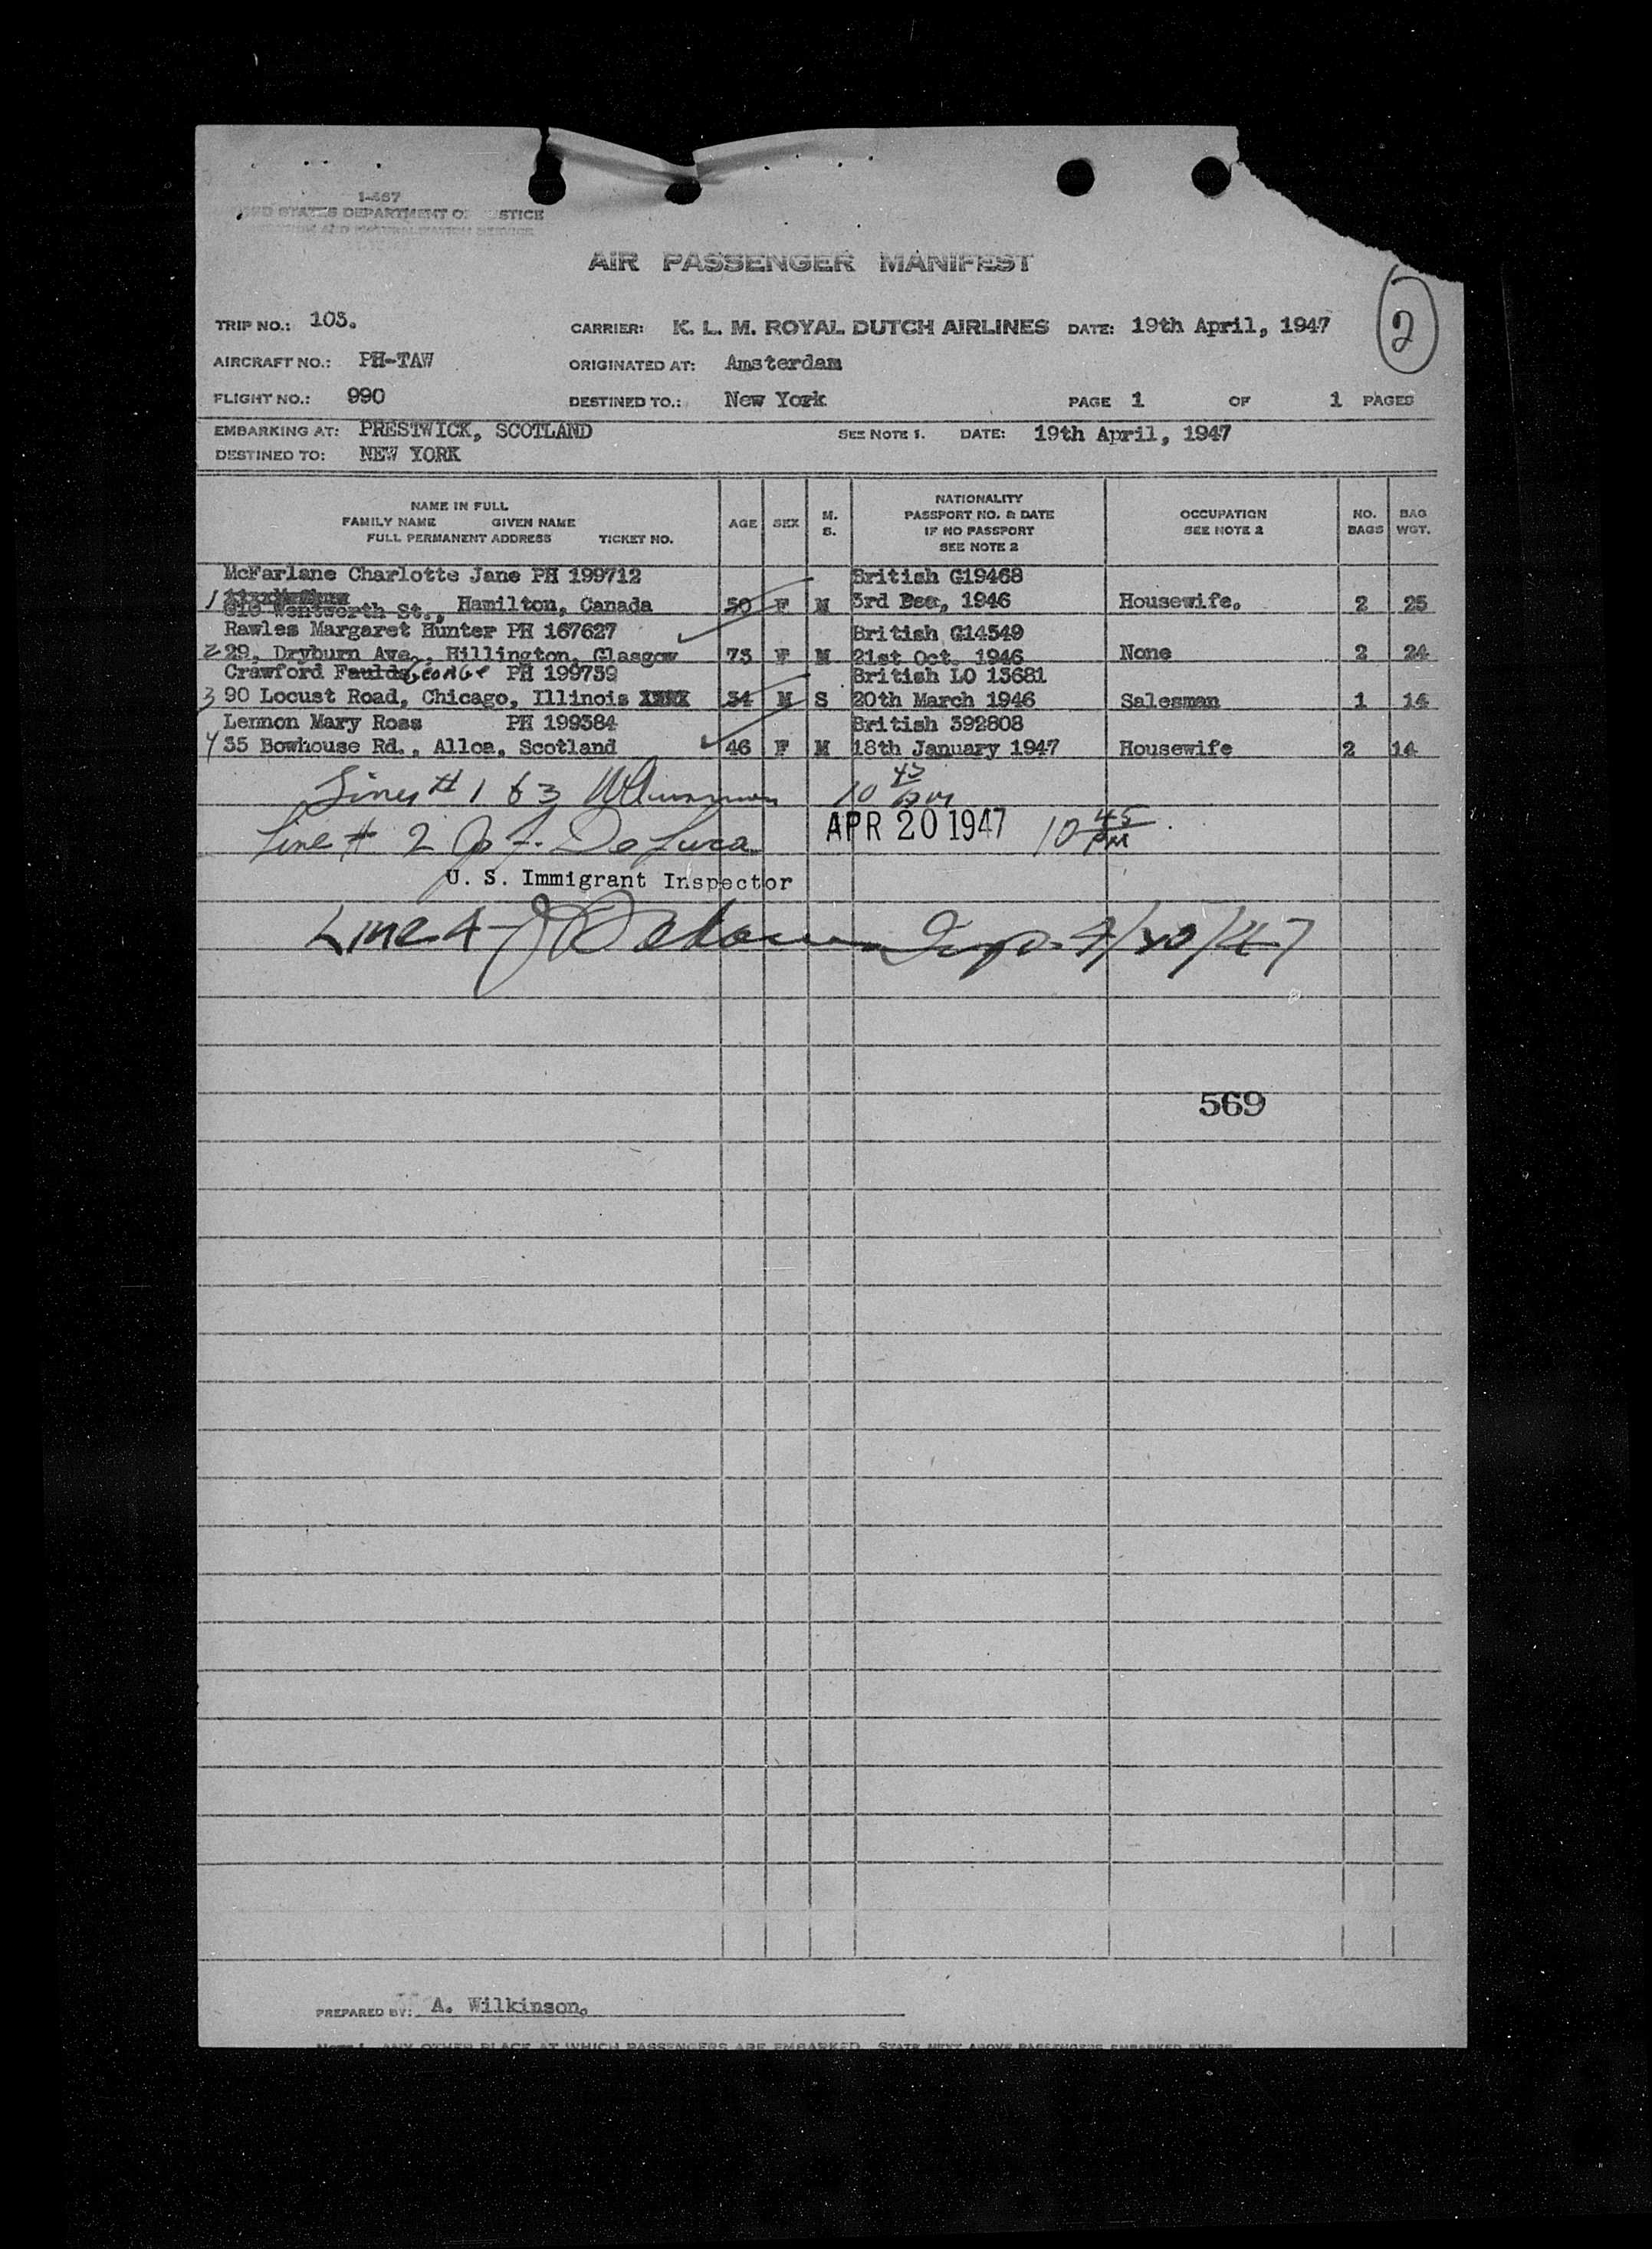 I-467
UNITED STATES DEPARTMENT OF JUSTICE
IMMIGRATION AND NATURALIZATION SERVICE
AIR PASSENGER MANIFEST
2
TRIP NO.: 103. CARRIER: K. L. M. ROYAL DUTCH AIRLINES DATE: 19th April, 1947
AIRCRAFT NO.: PH-TAW ORIGINATED AT: Amsterdam
FLIGHT NO.: 990 DESTINED TO.: New York PAGE 1 OF 1 PAGES
EMBARKING AT: PRESTWICK, SCOTLAND SEE NOTE 1. DATE: 19th April, 1947
DESTINED TO: NEW YORK
NAME IN FULL
FAMILY NAME GIVEN NAME
FULL PERMANENT ADDRESS TICKET NO.
AGE SEX M. S.
NATIONALITY
PASSPORT NO. & DATE
IF NO PASSPORT
SEE NOTE 2
OCCUPATION
SEE NOTE 2
NO. BAGS
BAG WGT.
McFarlane Charlotte Jane PH 199712 British G19468
1 Wentworth St., Hamilton, Canada 50 F M 3rd Dec, 1946 Housewife. 2 25
Rawles Margaret Hunter PH 167627 British G14549
2 29, Dryburn Ave., Hillington, Glasgow 73 F M 21st Oct. 1946 None 2 24
Crawford Faulds George PH 199739 British LO 13681
3 90 Locust Road, Chicago, Illinois XXXX 34 M S 20th March 1946 Salesman 1 14
Lennon Mary Ross PH 199384 British 392808
4 35 Bowhouse Rd., Alloa, Scotland 46 F M 18th January 1947 Housewife 2 14
Lines # 1 & 3 10 45 PM
Line # 2 J. De Luca APR 20 1947 10 45 PM
U. S. Immigrant Inspector
Line 4 - Insp. 4/20/47
569
PREPARED BY: A. Wilkinson.
NOTE 1. ANY OTHER PLACE AT WHICH PASSENGERS ARE EMBARKED. STATE NEXT ABOVE PASSENGERS EMBARKED THERE